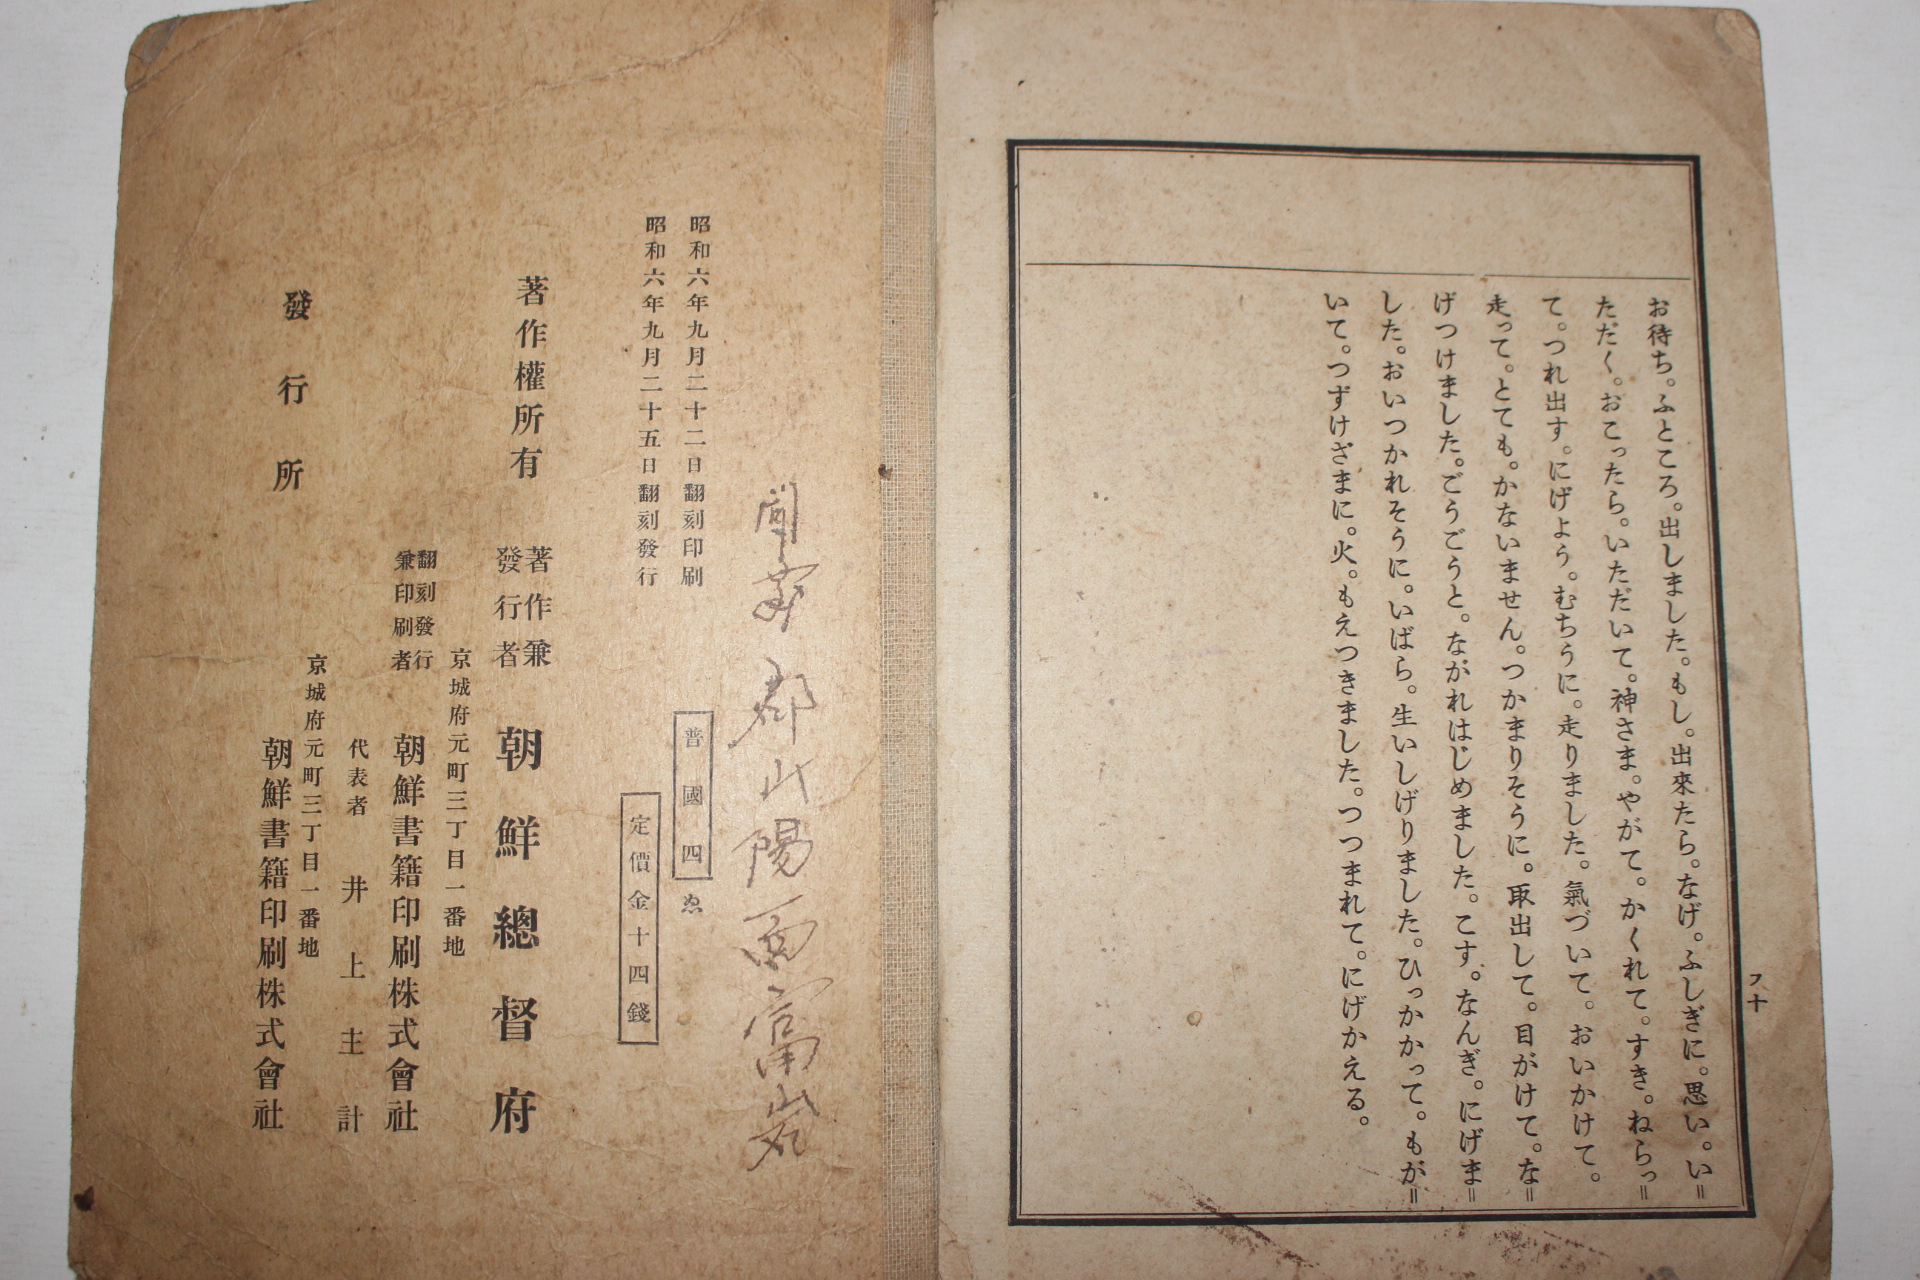 お待ち。ふところ。出しました。もし。出來たら。なげ。ふしぎに。思い。い=
ただく。おこったら。いただいて。神さま。やがて。かくれて。すき。ねらっ=
て。つれ出す。にげよう。むちうに。走りました。氣づいて。おいかけて。
走って。とても。かないません。つかまりそうに。取出して。目がけて。な=
げつけました。ごうごうと。ながれはじめました。こす。なんぎ。にげま=
した。おいつかれそうに。いばら。生いしげりました。ひっかかって。もが=
いて。つずけざまに。火。もえつきました。つつまれて。にげかえる。
八十
郡山陽面
昭和六年九月二十二日翻刻印刷
昭和六年九月二十五日翻刻發行
普國四ゑ
定價金十四錢
著作權所有
著作兼
發行者
朝鮮總督府
京城府元町三丁目一番地
翻刻發行
兼印刷者
朝鮮書籍印刷株式會社
代表者 井上主計
京城府元町三丁目一番地
發行所
朝鮮書籍印刷株式會社